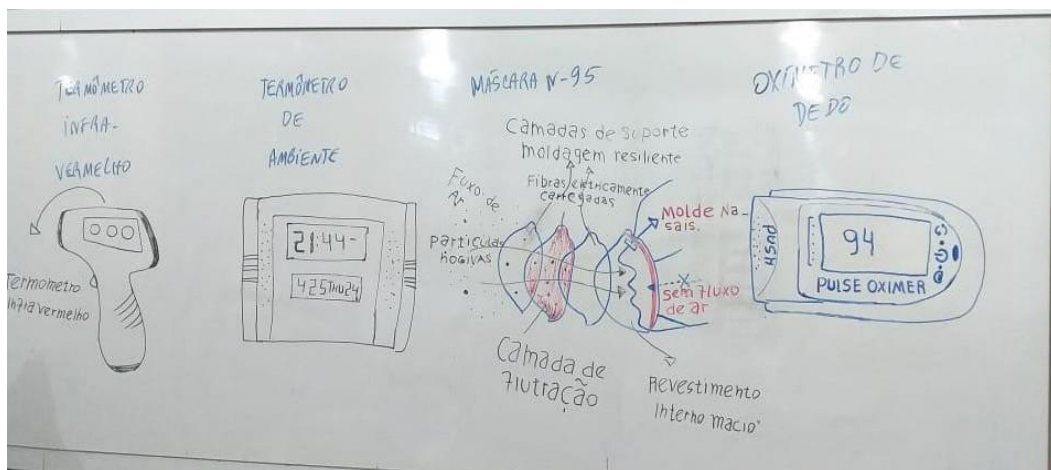 TERMÔMETRO
INFRA-
VERMELHO
Termometro
infravermelho
TERMÔMETRO
DE
AMBIENTE
21:44-
425THU24
MÁSCARA N-95
Camadas de suporte
moldagem resiliente
Fibras eletricamente
carregadas
Fuxo de
Ar
Particulas
nogivas
Molde Na-
sais.
sem fluxo
de ar
Camada de
Flutração
Revestimento
Interno macio
OXÍMETRO DE
DEDO
PUSH
94
PULSE OXIMER